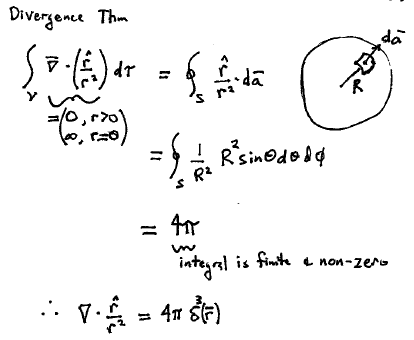 Divergence Thm
∫_V ∇̄ · (r̂/r²) dτ = ∮_S r̂/r² · dā
= (0, r>0
∞, r=0)
dā
R
= ∮_S 1/R² R² sinθ dθ dφ
= 4π
integral is finite & non-zero
∴ ∇ · r̂/r² = 4π δ³(r̄)